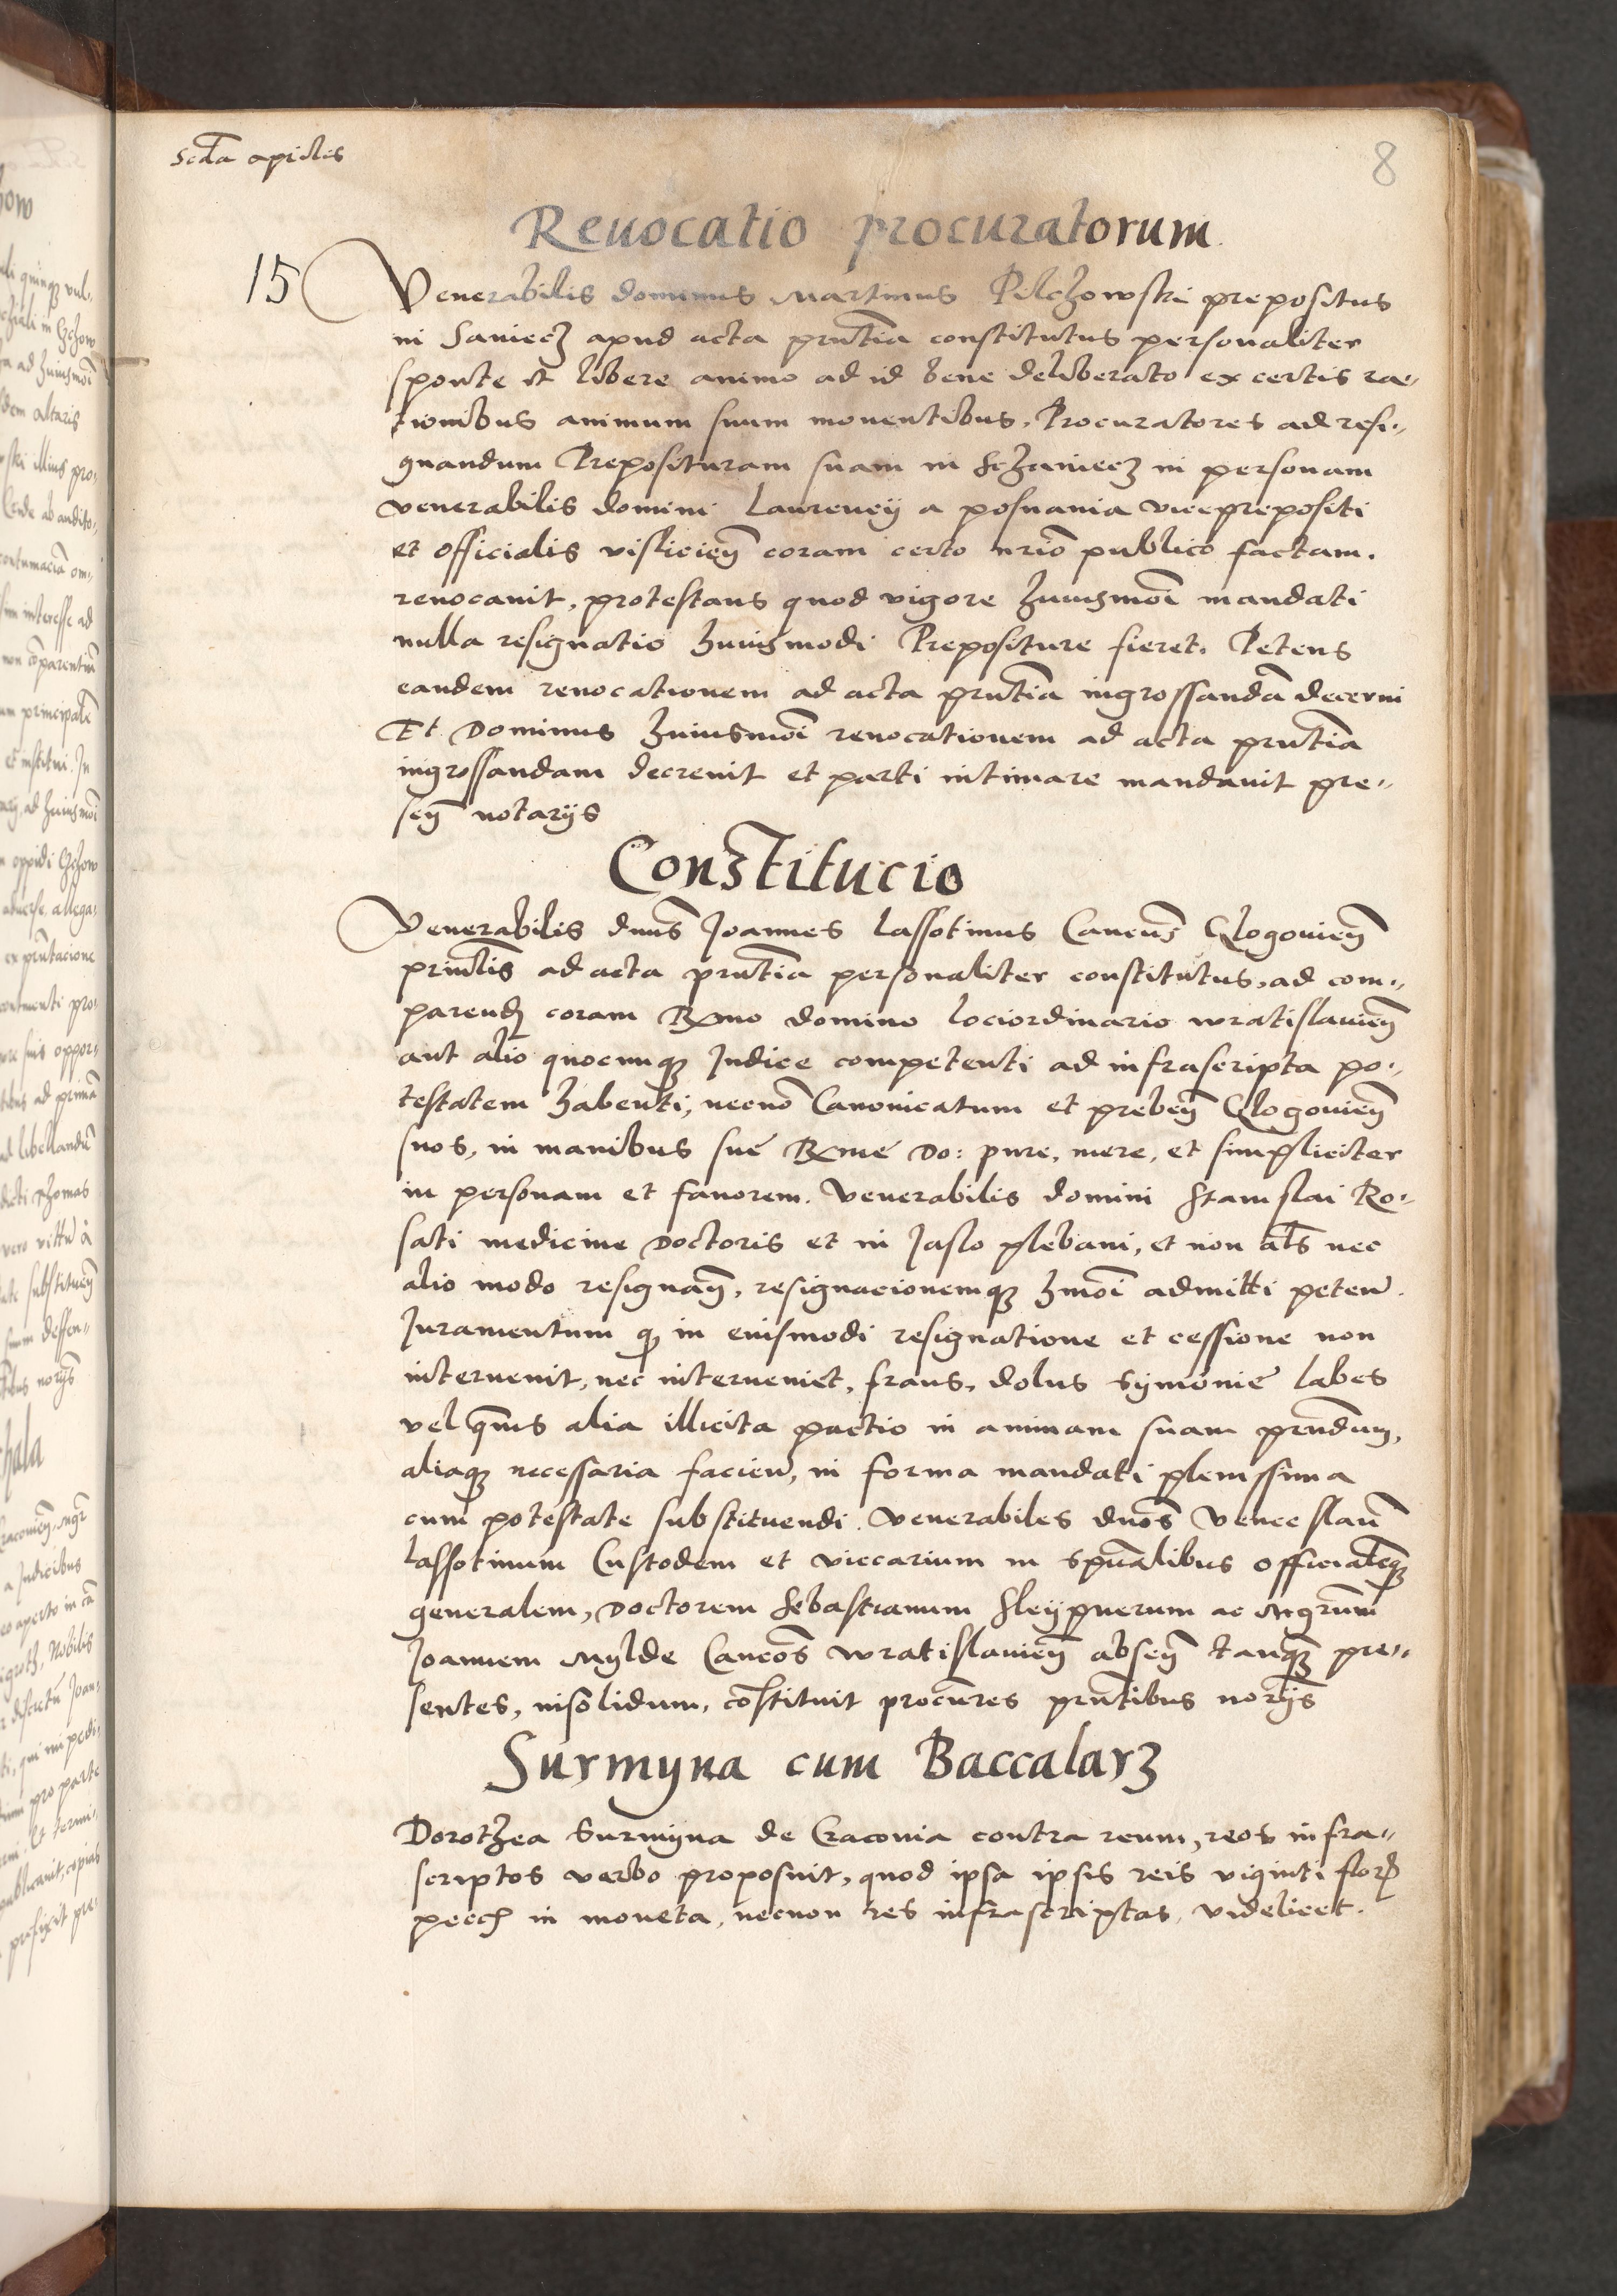 Scda aprilis
8
Reuocatio procuratorum
15 Venerabilis dominus Martinus Pilchowski prepositus
in Saniecz apud acta pñtia constitutus personaliter
sponte et libere animo ad id bene deliberato ex certis rac„
tionibus animum suum mouentibus, Procuratores ad resi„
gnandum Preposituram suam in Sczaniecz in personam
venerabilis domini Laurencij a posnania viceprepositi
et officialis visliciēn coram certo nrio publico factam.
reuocauit, protestans quod vigore huiusmōi mandati
nulla resignatio huiusmodi Prepositure fieret. Petens
eandem reuocationem ad acta pñtia ingrossandā decerni
Et Dominus huiusmōi reuocationem ad acta pñtia
ingrossandam decreuit et parti intimare mandauit pre„
señ notarijs
Constitucio
Venerabilis dnūs Joannes Lassotinus Cancūs Glogouieñ
princtis ad acta pñtia personaliter constitutus, ad com„
parend coram Rmo domino lociordinario wratislauieñ
aut alio quocunq Judice competenti ad infrascripta po„
testatem habenti, necnō Canonicatum et prebeñ Glogouieñ
suos, in manibus sue Rme Do: pure, mere, et simpliciter
in personam et fauorem. Venerabilis domini Stanislai Ro„
sati medicine Doctoris et in Jaslo plebani, et non als nec
alio modo resignañ, resignacionemq hmōi admitti peteñ.
Juramentum q in euismodi resignatione et cessione non
interuenit, nec interueniet, fraus, dolus symonie labes
vel queuis alia illicita pactio in animam suam prendum,
aliaq necessaria facieñ, in forma mandati plenissima
cum potestate substituendi. Venerabiles dnōs Venceslaū
Lassotinum Custodem et viccarium in spūalibus officialemq
generalem, Doctorem Sebastianum Sleypnerum ac Mgrūm
Joannem Mylde Cancōs wratislauieñ abseñ tanq pre„
sentes, insolidum, cōstituit procūres pñtibus norijs
Surmyna cum Baccalarz
Dorothea Surmyna de Cracouia contra reum, reos infra„
scriptos verbo proposuit, quod ipsa ipsis reis viginti flor
pecc in moneta, necnon res infrascriptas, videlicet.